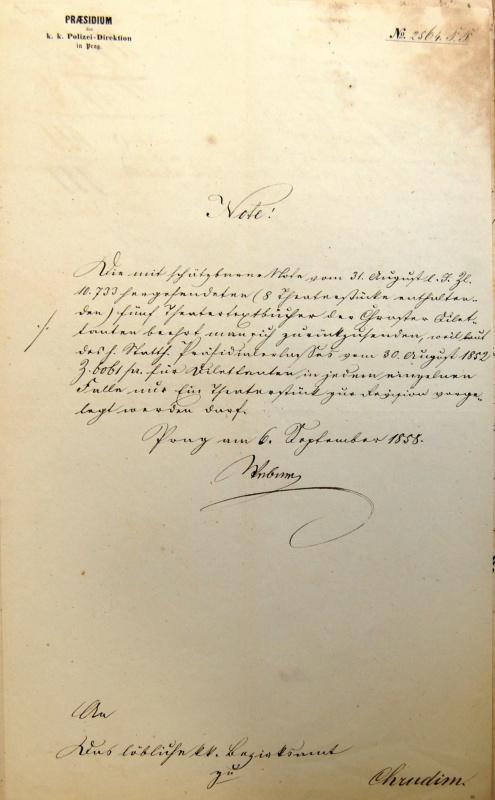 PRÆSIDIUM
der
k. k. Polizei-Direktion
in Prag.
No. 2864.
Note!
Die mit schätzbarer Note vom 31. August l. J. Zl.
10.733 hergesendeten (8 Theaterstücke enthalten-
den) fünf Theatertextbücher der Chraster Dilet-
tanten beehrt man sich zurückzusenden, weil laut
des h. Statth. Präsidialerlasses vom 30. August 1852
Z. 6061 pr. für Dilettanten in jedem einzelnen
Falle nur Ein Theaterstück zur Revision vorge-
legt werden darf.
Prag am 6. September 1858.
An
Das löbliche kk. Bezirksamt
zu
Chrudim.